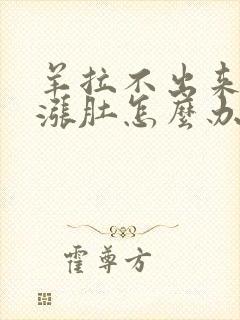 羊拉不出来
漲肚怎麼办
霍尊方